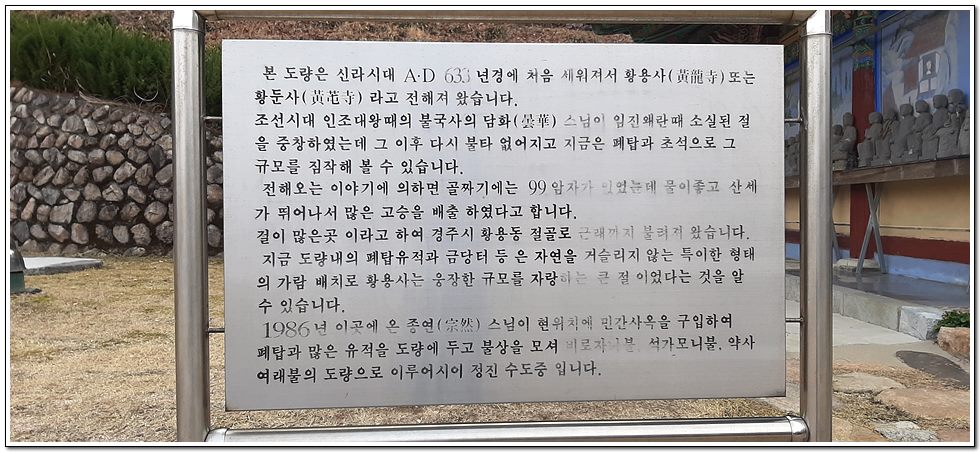 본 도량은 신라시대 A·D 633 년경에 처음 세워져서 황용사(黃龍寺)또는
황둔사(黃芚寺) 라고 전해져 왔습니다.
조선시대 인조대왕때의 불국사의 담화(曇華) 스님이 임진왜란때 소실된 절
을 중창하였는데 그 이후 다시 불타 없어지고 지금은 폐탑과 초석으로 그
규모를 짐작해 볼 수 있습니다.
전해오는 이야기에 의하면 골짜기에는 99암자가 있었는데 물이좋고 산세
가 뛰어나서 많은 고승을 배출 하였다고 합니다.
절이 많은곳 이라고 하여 경주시 황용동 절골로 근래까지 불려져 왔습니다.
지금 도량내의 폐탑유적과 금당터 등 은 자연을 거슬리지 않는 특이한 형태
의 가람 배치로 황용사는 웅장한 규모를 자랑하는 큰 절 이었다는 것을 알
수 있습니다.
1986년 이곳에 온 종연(宗然) 스님이 현위치에 민간사옥을 구입하여
폐탑과 많은 유적을 도량에 두고 불상을 모셔 비로자나불, 석가모니불, 약사
여래불의 도량으로 이루어시어 정진 수도중 입니다.